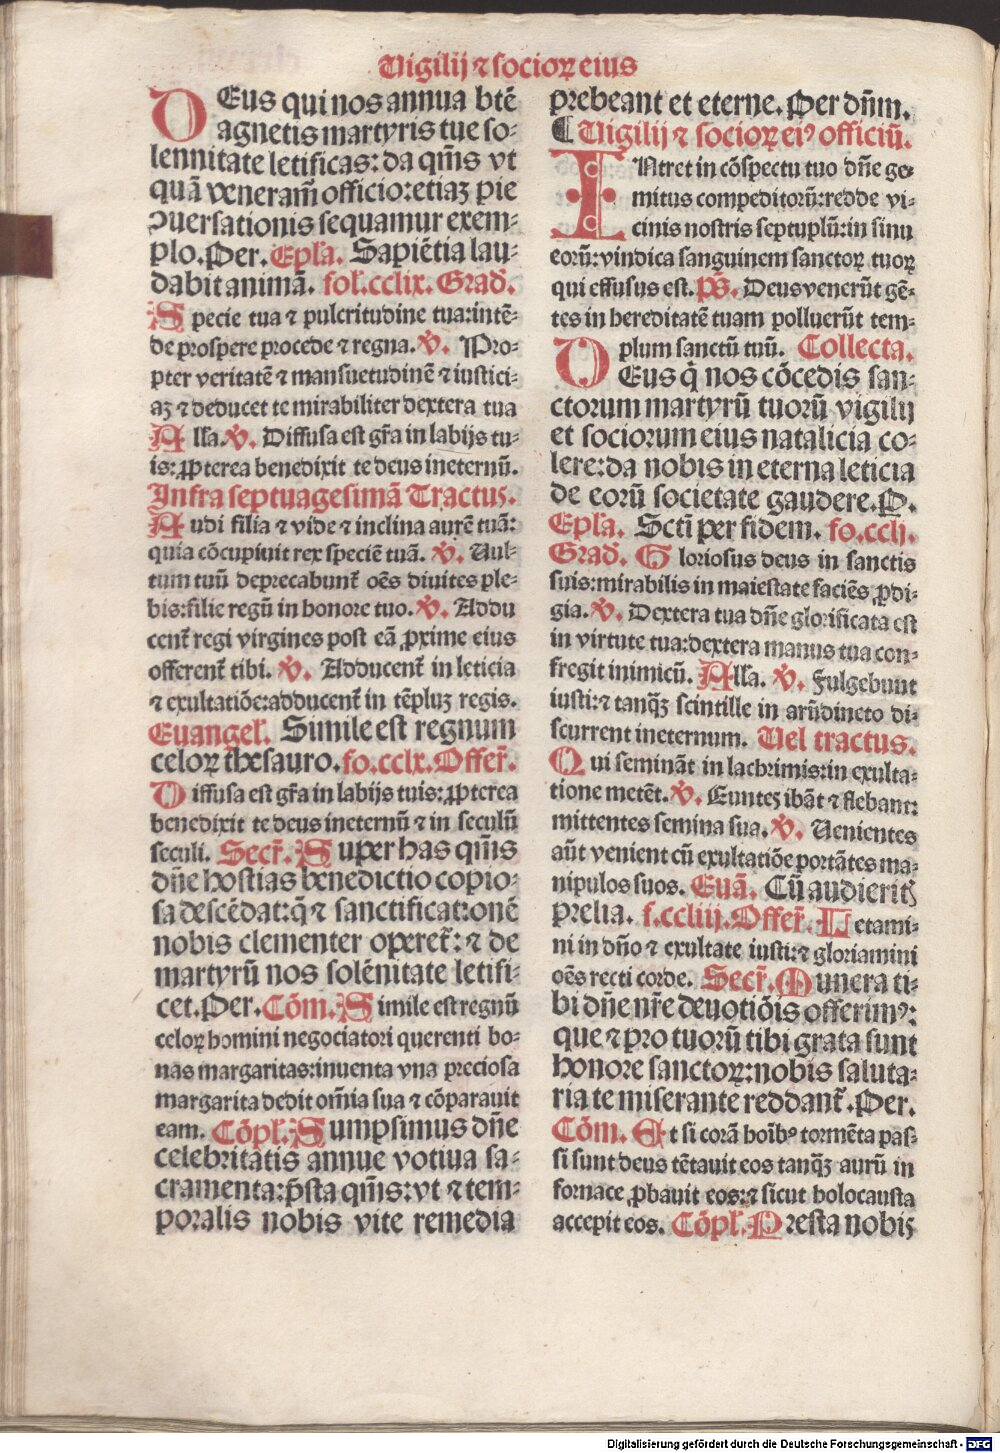 Vigilij ⁊ socioꝝ eius
DEus qui nos annua btē
agnetis martyris tue so⸗
lennitate letificas: da qm̄s vt
quā veneram̄ officio: etiaꝫ pie
ꝯuersationis sequamur exem⸗
plo. Per. Epl̄a. Sapiētia lau⸗
dabit animā. fol. cclix. Grad̄.
Specie tua ⁊ pulcritudine tua: intē⸗
de prospere procede ⁊ regna. ℣. Pro⸗
pter veritatē ⁊ mansuetudinē ⁊ iustici⸗
aꝫ ⁊ deducet te mirabiliter dextera tua
All̄a. ℣. Diffusa est gr̄a in labijs tu⸗
is: ꝓpterea benedixit te deus ineternū.
Infra septuagesimā Tractus.
Audi filia ⁊ vide ⁊ inclina aurē tuā:
quia cōcupiuit rex speciē tuā. ℣. Uul⸗
tum tuū deprecabunt̄ oēs diuites ple⸗
bis: filie regū in honore tuo. ℣. Addu
cent̄ regi virgines post eā ꝓxime eius
offerent̄ tibi. ℣. Adducent̄ in leticia
⁊ exultatiōe: adducent̄ in tēpluꝫ regis.
Euangel̄. Simile est regnum
celoꝝ thesauro. fo. cclx. Offer̄.
Diffusa est gr̄a in labijs tuis: ꝓpterea
benedixit te deus ineternū ⁊ in seculū
seculi. Secr̄. Super has qm̄s
dn̄e hostias benedictio copio⸗
sa descēdat: q̄ ⁊ sanctificat̄onē
nobis clementer operet̄: ⁊ de
martyrū nos solēnitate letifi⸗
cet. Per. Cōm. Simile est regnū
celoꝝ homini negociatori querenti bo⸗
nas margaritas: inuenta vna preciosa
margarita dedit om̄ia sua ⁊ cōparauit
eam. Cōpl̄. Sumpsimus dn̄e
celebritatis annue votiua sa⸗
cramenta: p̄sta qm̄s: vt ⁊ tem⸗
poralis nobis vite remedia
prebeant et eterne. Per dn̄m.
¶ Vigilij ⁊ socioꝝ eiꝰ officiū.
INtret in cōspectu tuo dn̄e ge⸗
mitus compeditorū: redde vi⸗
cinis nostris septuplū: in sinu
eorū: vindica sanguinem sanctoꝝ tuoꝝ
qui effusus est. Ps̄. Deus venerūt gē⸗
tes in hereditatē tuam polluerūt tem⸗
plum sanctū tuū. Collecta.
DEus q̇ nos cōcedis san⸗
ctorum martyrū tuorū vigilij
et sociorum eius natalicia co⸗
lere: da nobis in eterna leticia
de eorū societate gaudere. P.
Epl̄a. Scti per fidem. fo. cclj.
Grad̄. Gloriosus deus in sanctis
suis: mirabilis in maiestate faciēs ꝓdi⸗
gia. ℣. Dextera tua dn̄e glorificata est
in virtute tua: dextera manus tua con⸗
fregit inimicū. All̄a. ℣. Fulgebunt
iusti: ⁊ tanq̄ꝫ scintille in arūdineto di⸗
scurrent ineternum. Vel tractus.
Qui semināt in lachrimis: in exulta⸗
tione metēt. ℣. Euntes ibāt ⁊ flebant:
mittentes semina sua. ℣. Uenientes
aūt venient cū exultatiōe portātes ma⸗
nipulos suos. Euā. Cū audieritꝭ
prelia. f. ccliij. Offer̄. Letami⸗
ni in dn̄o ⁊ exultate iusti: ⁊ gloriamini
oēs recti corde. Secr̄. Munera ti⸗
bi dn̄e nr̄e deuotiōis offerimꝰ:
que ⁊ pro tuorū tibi grata sunt
honore sanctoꝝ: nobis saluta⸗
ria te miserante reddant̄. Per.
Cōm. Et si corā hoībꝰ tormēta pas⸗
si sunt deus tētauit eos tanq̄ꝫ aurū in
fornace ꝓbauit eos: ⁊ sicut holocausta
accepit eos. Cōpl̄. Presta nobis
Digitalisierung gefördert durch die Deutsche Forschungsgemeinschaft - DFG